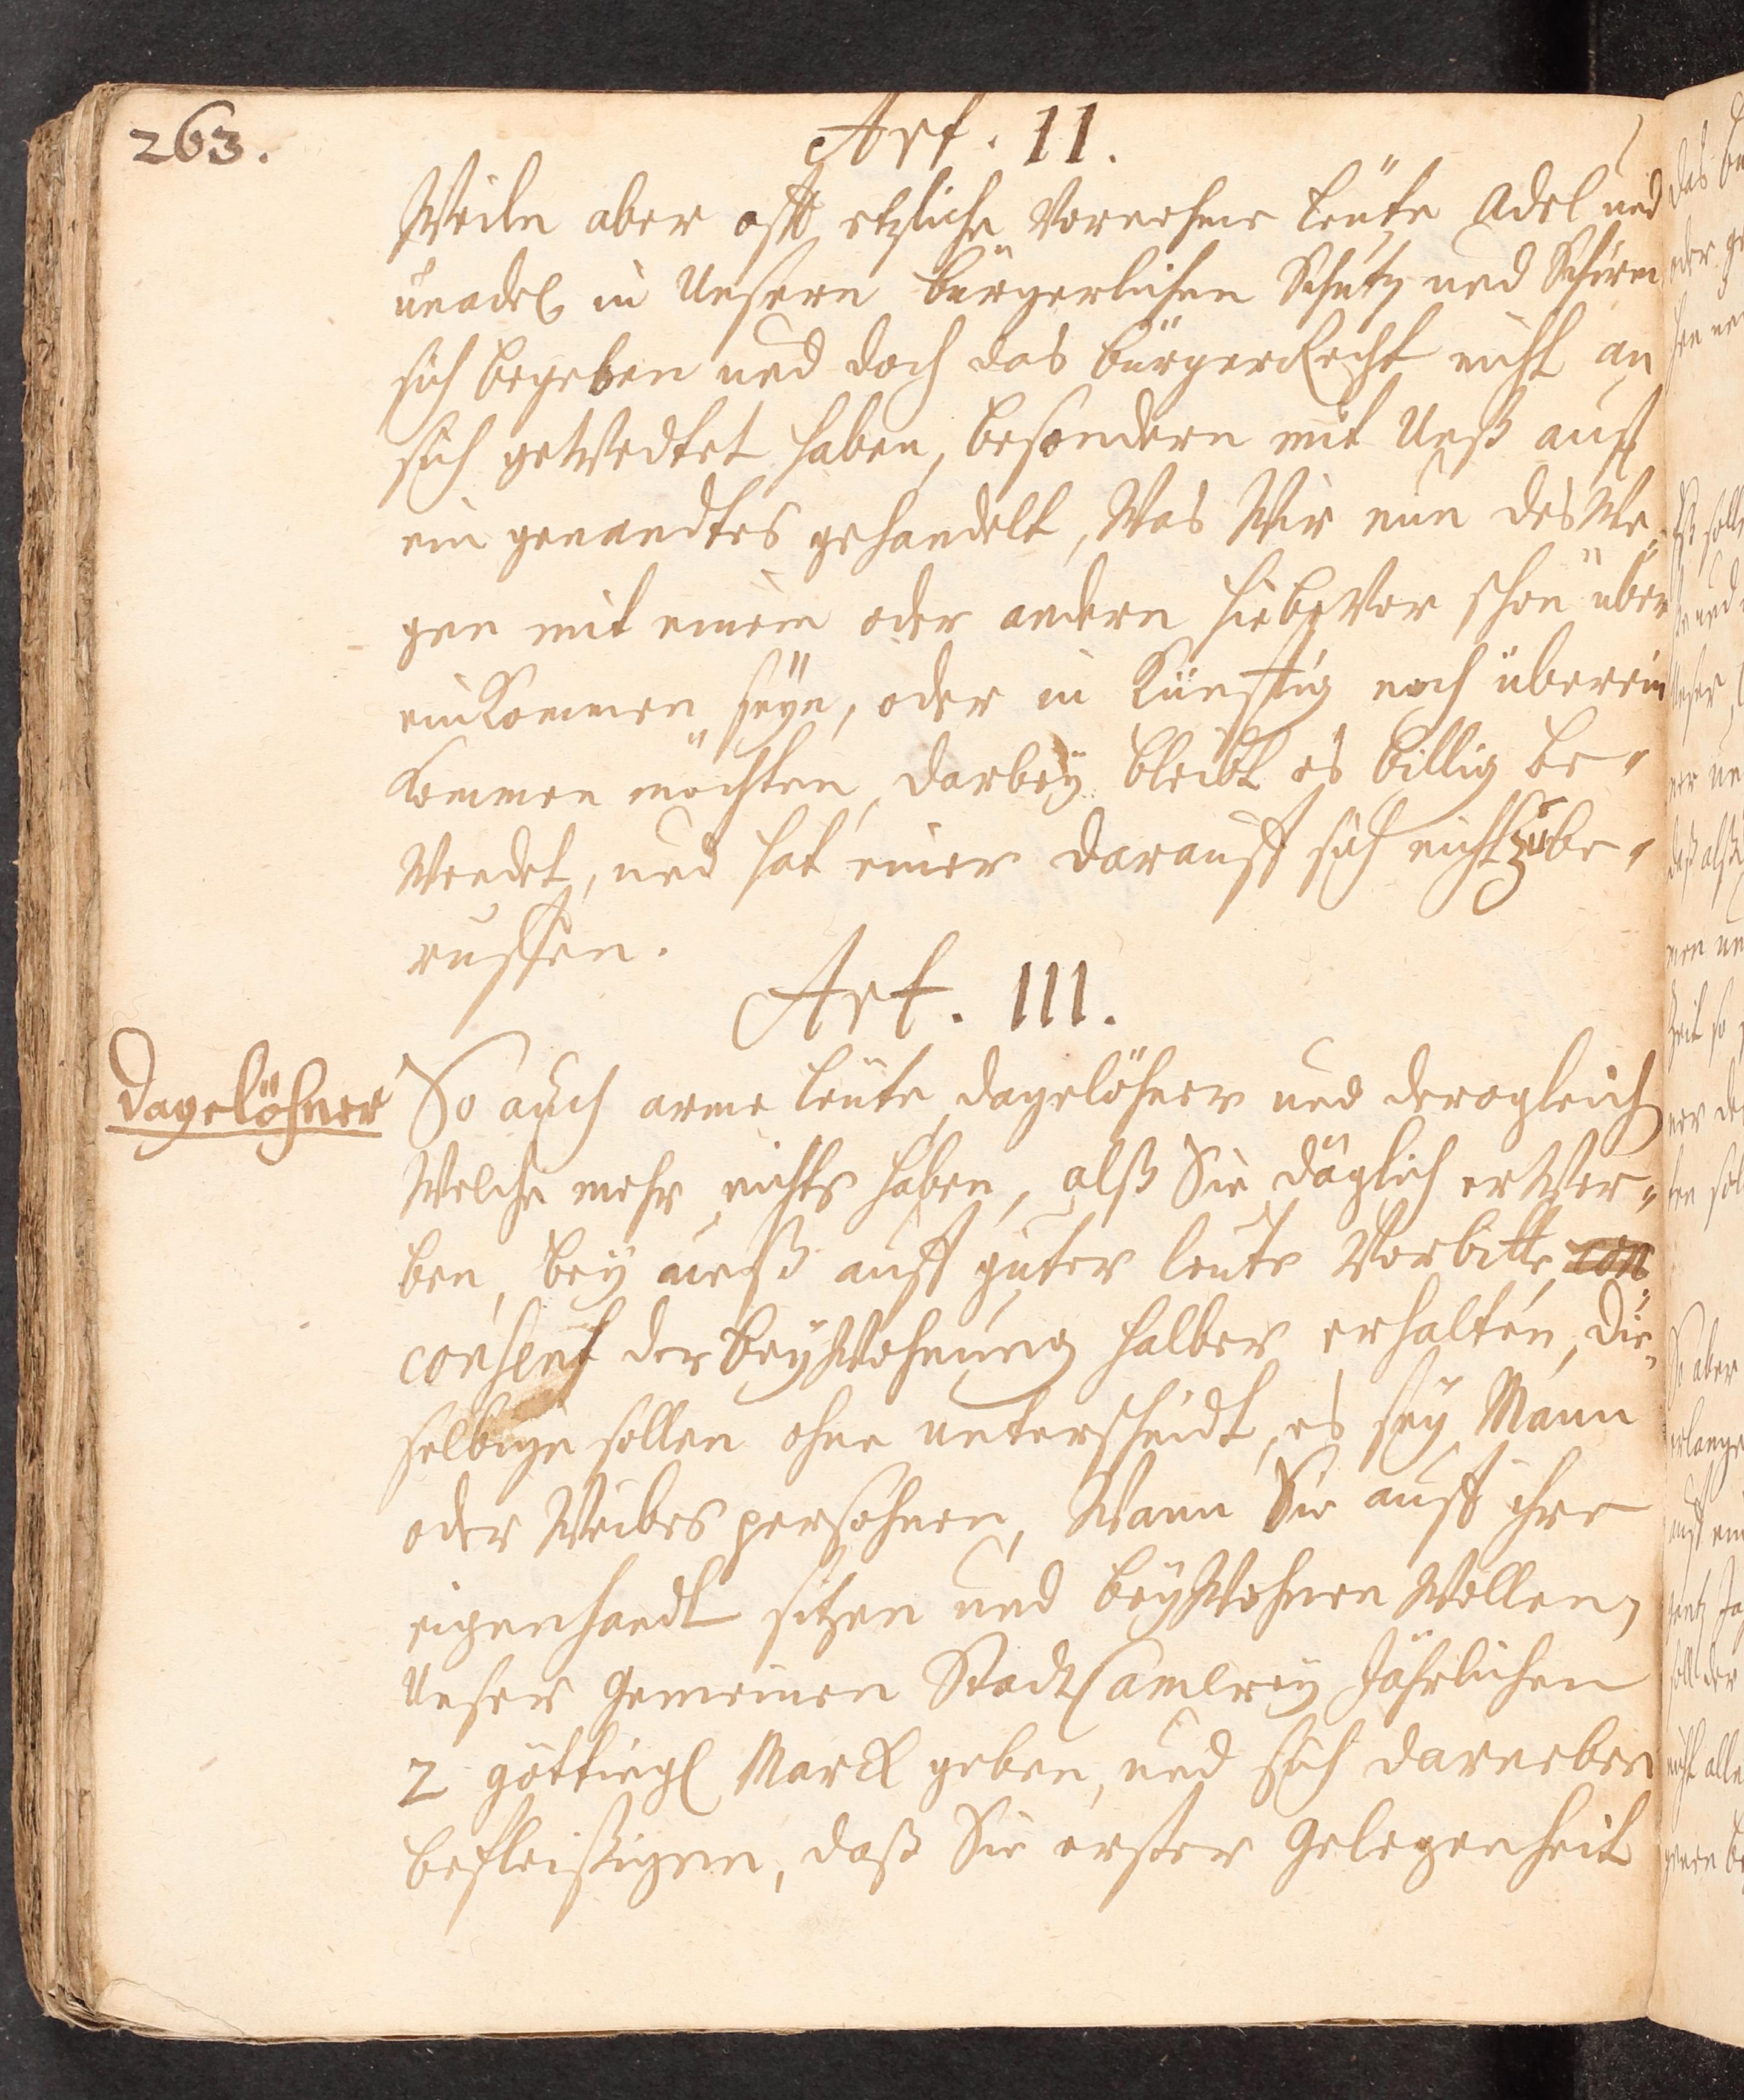 263.
Art. 11.
Weiln aber offt etzliche Vornehme leüte Adel und
unadel in Unsern bürgerlichen Schutz und Schirm
sich begeben und doch das bürgerRecht nicht an
sich gewedtet haben, besondern mit Unß auff
ein genandtes gehandelt, Was Wir nun desWe„
gen mit einem oder andern hiebeVor schon über
einKommen seÿn, oder in Künfftig noch überein
Kommen möchten, darbeÿ bleibt es billig be„
Wendet, und hat einer darauff sich nicht zu be„
ruffen.
Art. 111.
Dagelöhner
So auch arme leüte, dagelöhner und derogleich
Welche mehr nichts haben, alß Sie däglich erWer„
ben, beÿ unß auff guter leute Vorbitte, con„
consent der beÿWohnung halber erhalten, die„
selbige sollen ohne unterscheidt, es seÿ Mann
oder Weibes persohnen, Wann Sie auff ihre
eigenhandt sitzen und beÿWohnen Wollen,
Unser Gemeinen StadtCamereÿ Jährlichen
2 göttingl Marck geben, und sich darneben
befleißigen, daß Sie erster Gelegenheit